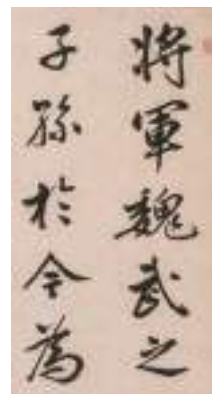 將軍魏武之
子孫於今為